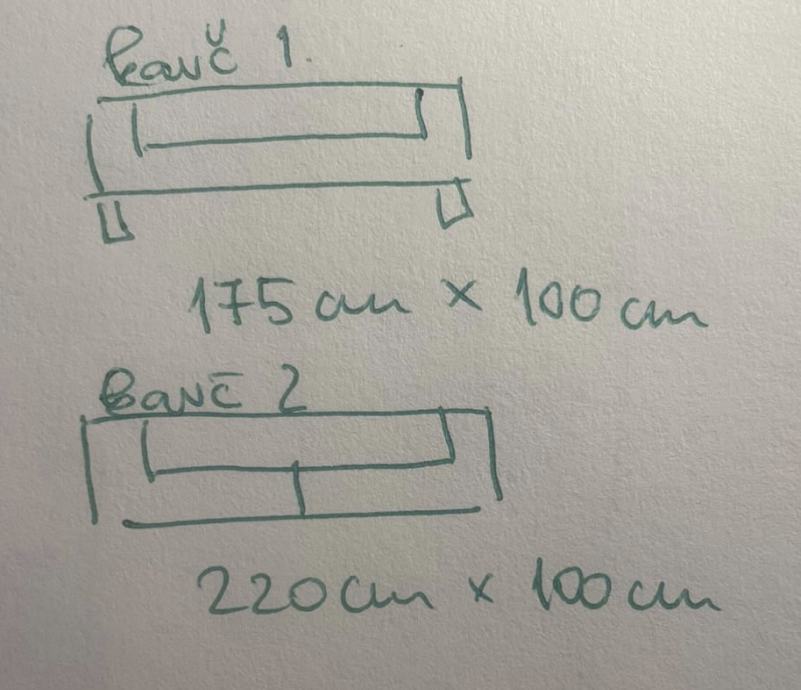 kavč 1.
175 cm × 100 cm
kavč 2
220 cm × 100 cm